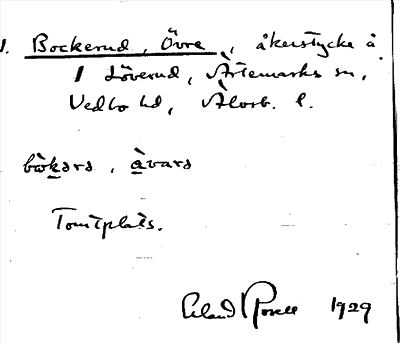 1. Bockerud, Övre, åkerstycke å
1 Löverud, Ärtemarks sn,
Vedbo hd, Älvsb. l.
bòkərs, àvars
Tomtplats.
Erland Rosell 1929